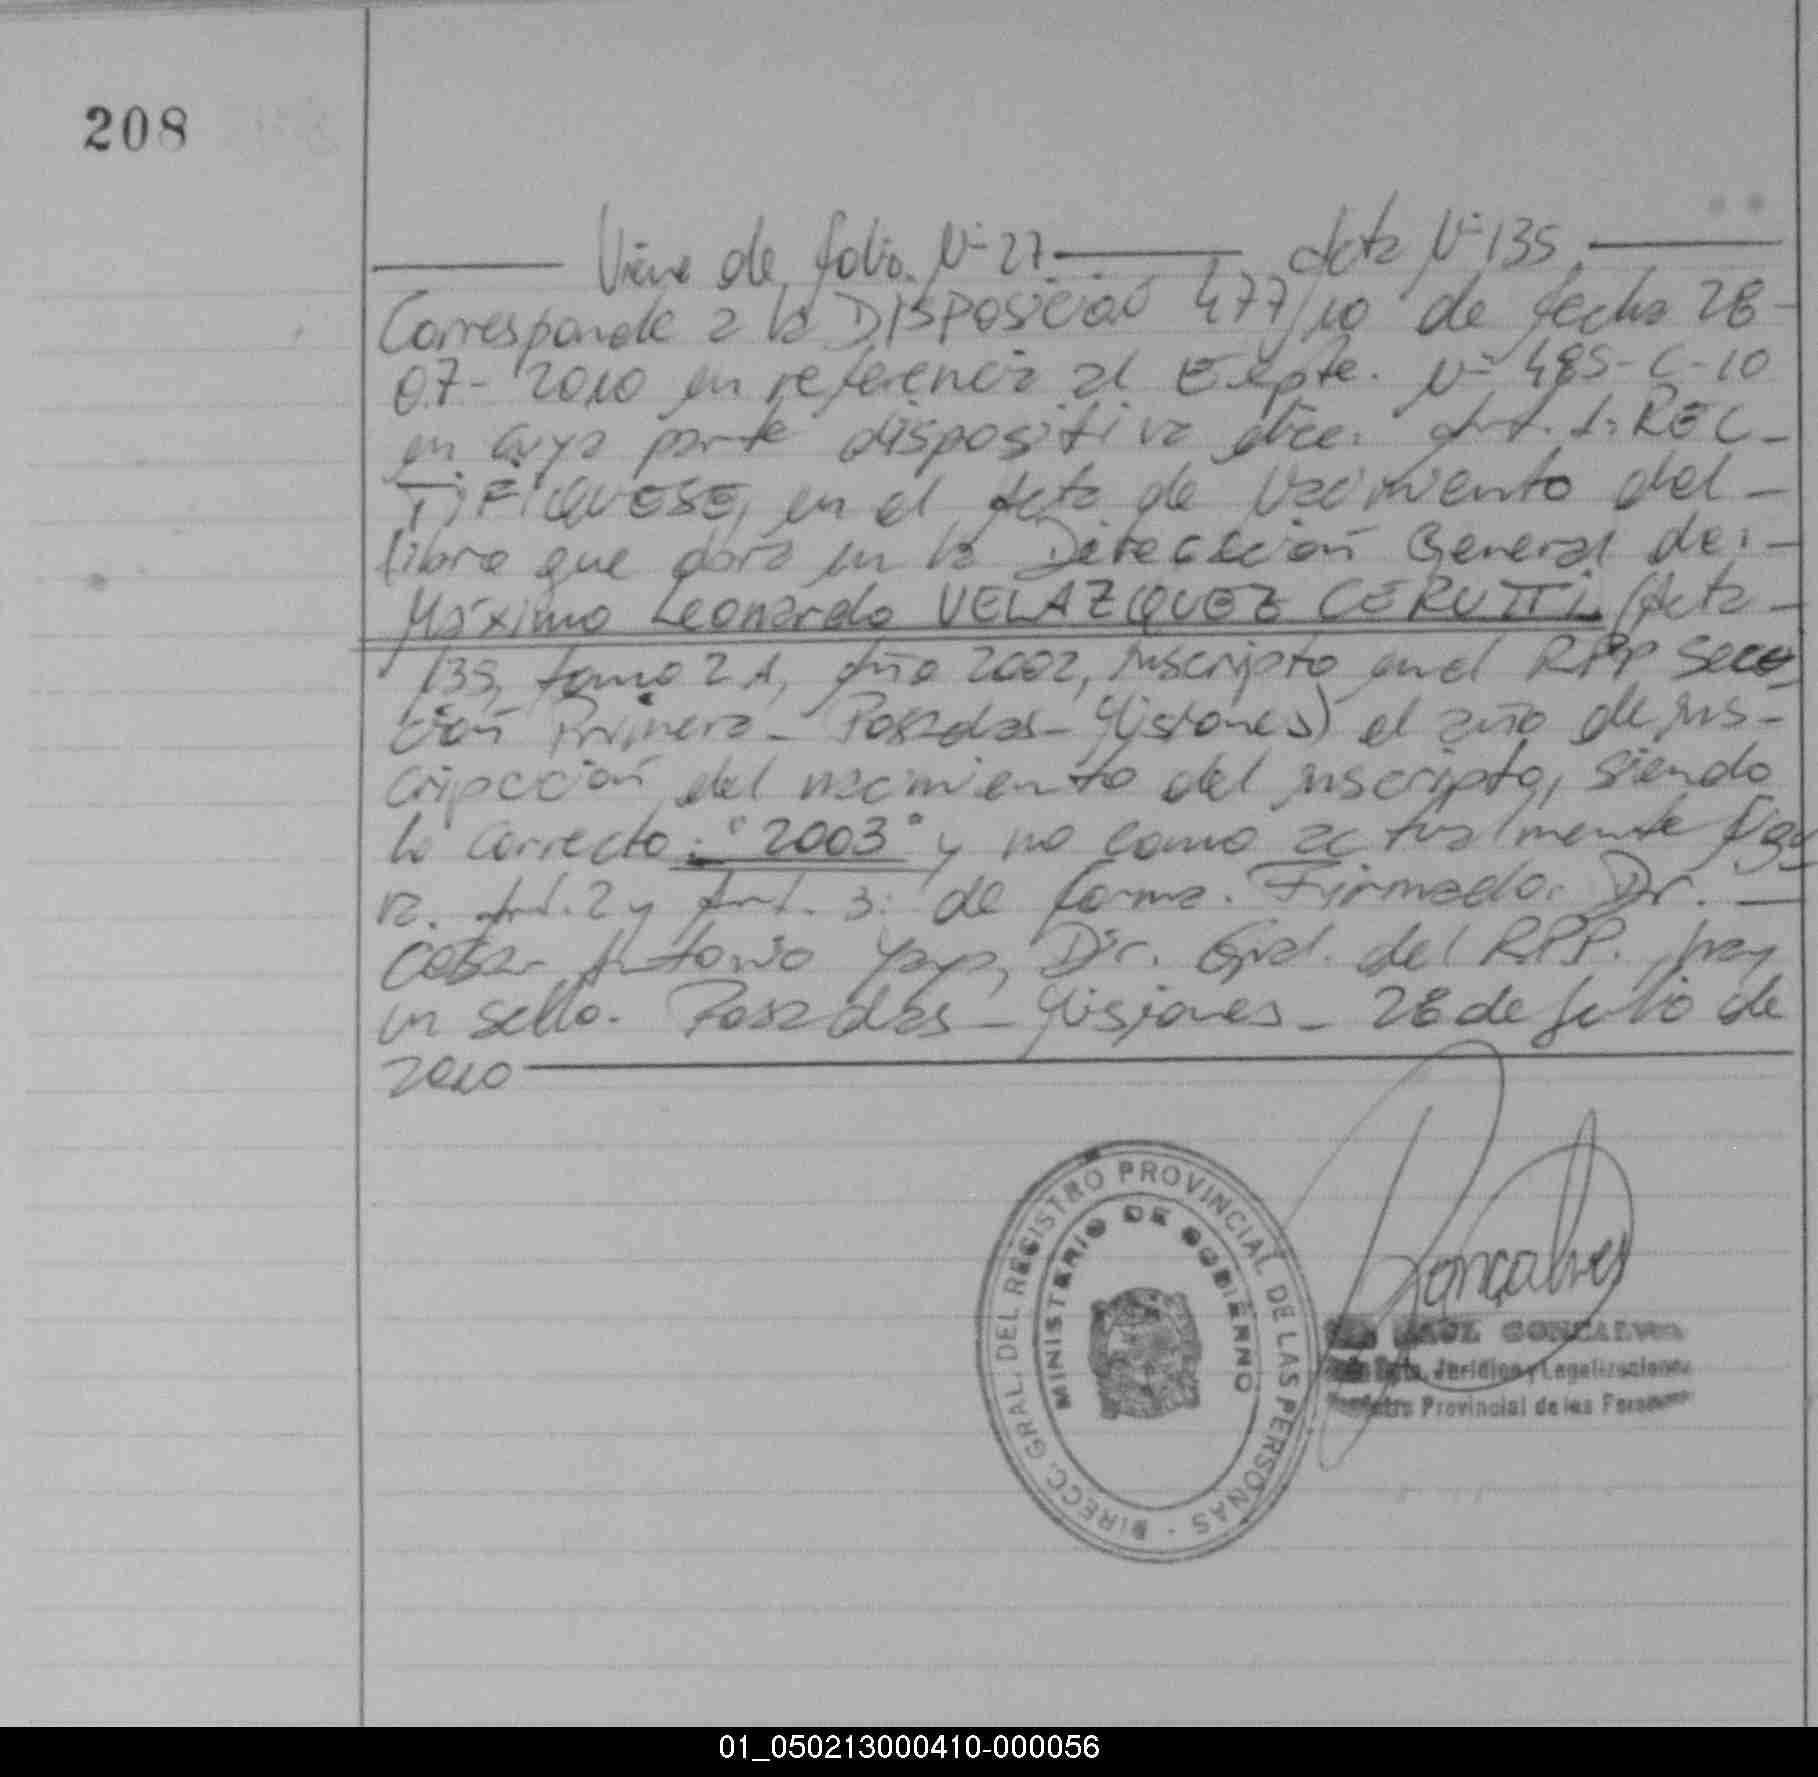 208
Viene de folio Nº 27 Acta Nº 135
Corresponde a la DISPOSICIÓN 477/10 de fecha 28-
07-2010 en referencia al Expte. Nº 485-C-10
en cuya parte dispositiva dice: Art. 1: REC-
TIFIQUESE, en el Acta de Nacimiento del -
libro que obra en la Dirección General de: -
Máximo Leonardo VELAZQUEZ CERUTTI (Acta -
135, tomo 2A, Año 2002, inscripto en el RPP
ción Primera - Posadas - Misiones) el año de ins-
cripcción del nacimiento del inscripto, siendo
lo correcto: "2003" y no como actualmente figu
ra. Art. 2 y Art. 3: de forma. Firmado: Dr. -
Antonio Yaya, Dir. Gral. del RPP. hay
un sello. Posadas - Misiones - 28 de Julio de
2010
DIRECC. GRAL. DEL REGISTRO PROVINCIAL DE LAS PERSONAS
MINISTERIO DE GOBIERNO
Gonçalves
RAUL GONCALVES
Jurídica y Legalizaciones
Registro Provincial de las Personas
01_050213000410-000056